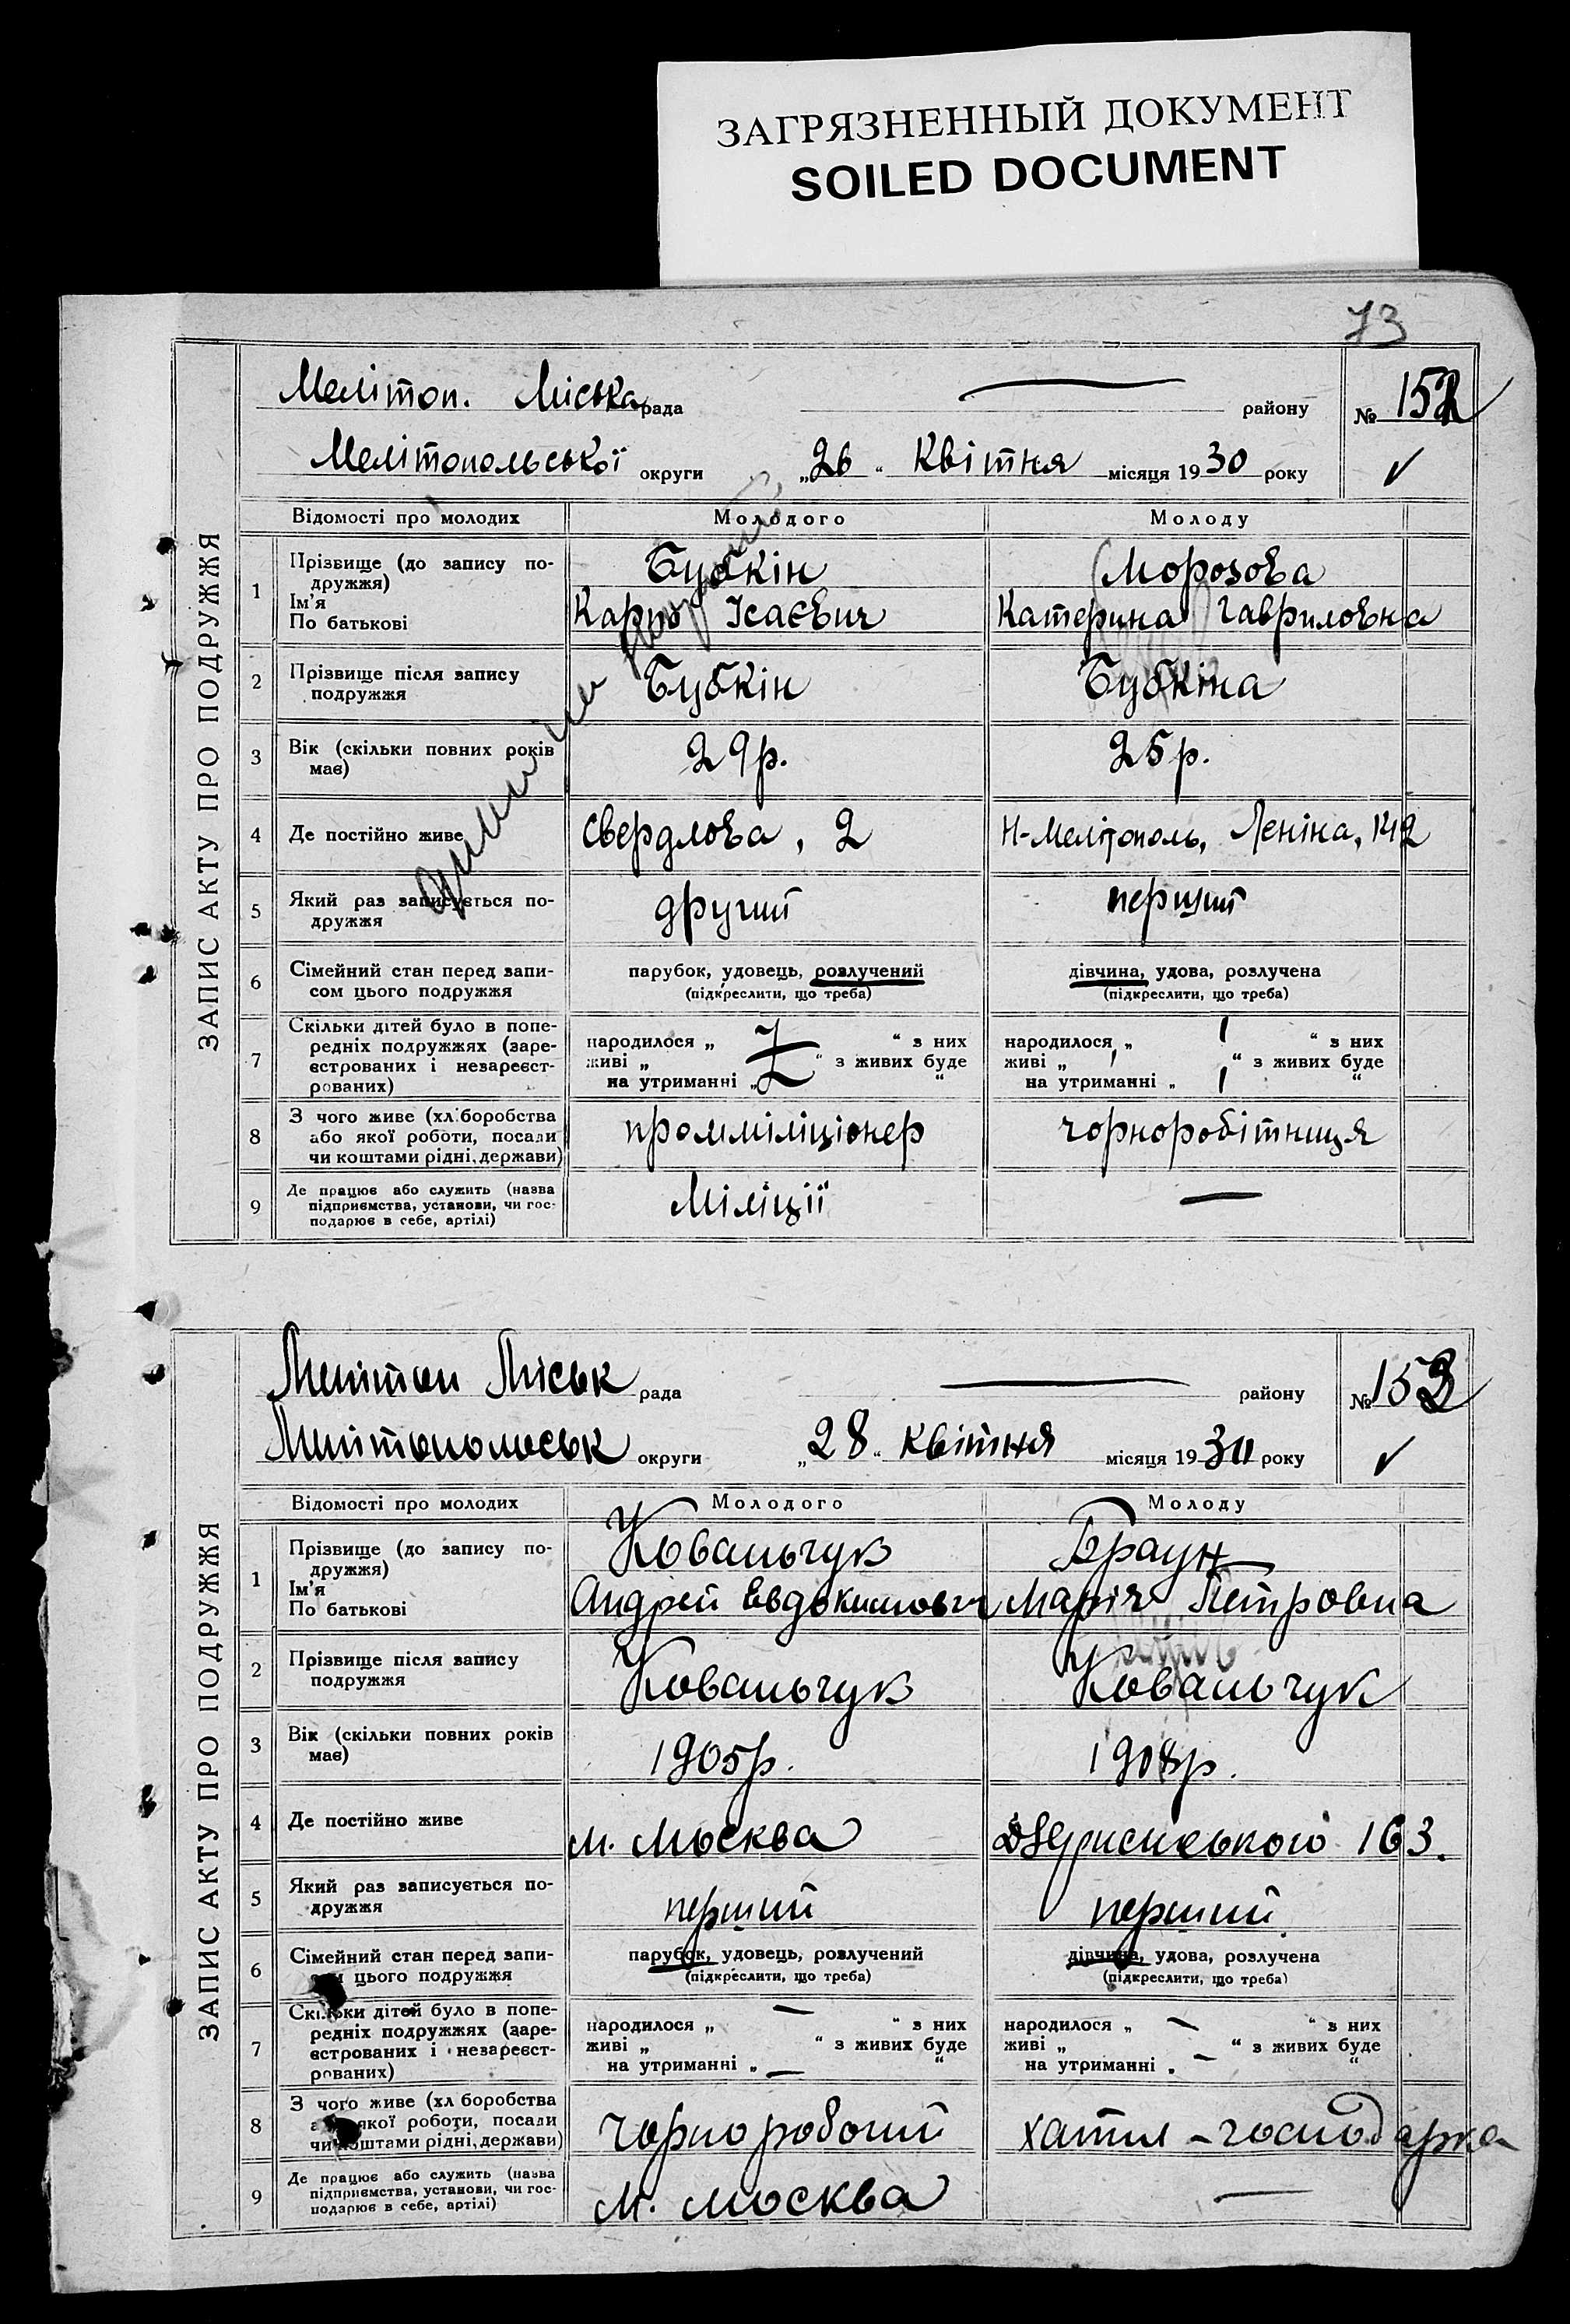 ЗАГРЯЗНЕННЫЙ ДОКУМЕНТ
SOILED DOCUMENT
73
ЗАПИС АКТУ ПРО ПОДРУЖЖЯ
Мелітоп. Міська рада района району № 152
Мелітопольської округи „26“ Квітня місяця 1930 року
Відомості про молодих Молодого Молоду
1 Прізвище (до запису по- Бубкін Морозова
дружжя)
Ім'я Карпо Ісаєвич Катерина Гавриловна
По батькові
2 Прізвище після запису Бубкін Бубкіна
подружжя
3 Вік (скільки повних років 29р. 25р.
має)
4 Де постійно живе Свердлова, 2 Н-Мелітополь, Леніна, 142
5 Який раз записується по- другий перший
дружжя
6 Сімейний стан перед запи- парубок, удовець, розлучений дівчина, удова, розлучена
сом цього подружжя (підкреслити, що треба) (підкреслити, що треба)
7 Скільки дітей було в попе-
редніх подружжях (заре- народилося „ “ з них народилося „ “ з них
єстрованих і незареєст- живі „ “ з живих буде живі „ “ з живих буде
рованих) на утриманні „ “ на утриманні „ “
8 З чого живе (хл.боробства промміліціонер чорноробітниця
або якої роботи, посади
чи коштами рідні, держави)
9 Де працює або служить (назва Міліції —
підприємства, установи, чи гос-
подарює в себе, артілі)
ЗАПИС АКТУ ПРО ПОДРУЖЖЯ
Мелітоп Міськ рада району № 153
Мелітопольськ округи „28“ квітня місяця 1930 року
Відомості про молодих Молодого Молоду
1 Прізвище (до запису по- Ковальчук Браун
дружжя)
Ім'я Андрей Евдокимович Марія Петровна
По батькові
2 Прізвище після запису Ковальчук Ковальчук
подружжя
3 Вік (скільки повних років 1905р. 1908р.
має)
4 Де постійно живе м. Москва Дзержинського 163.
5 Який раз записується по- перший перший
дружжя
6 Сімейний стан перед запи- парубок, удовець, розлучений дівчина, удова, розлучена
сом цього подружжя (підкреслити, що треба) (підкреслити, що треба)
7 Скільки дітей було в попе-
редніх подружжях (заре- народилося „ — “ з них народилося „ — “ з них
єстрованих і незареєст- живі „ “ з живих буде живі „ “ з живих буде
рованих) на утриманні „ — “ на утриманні „ — “
8 З чого живе (хл боробства чорно робочий хатня - господарка
або якої роботи, посади
чи коштами рідні, держави)
9 Де працює або служить (назва м. москва —
підприємства, установи, чи гос-
подарює в себе, артілі)